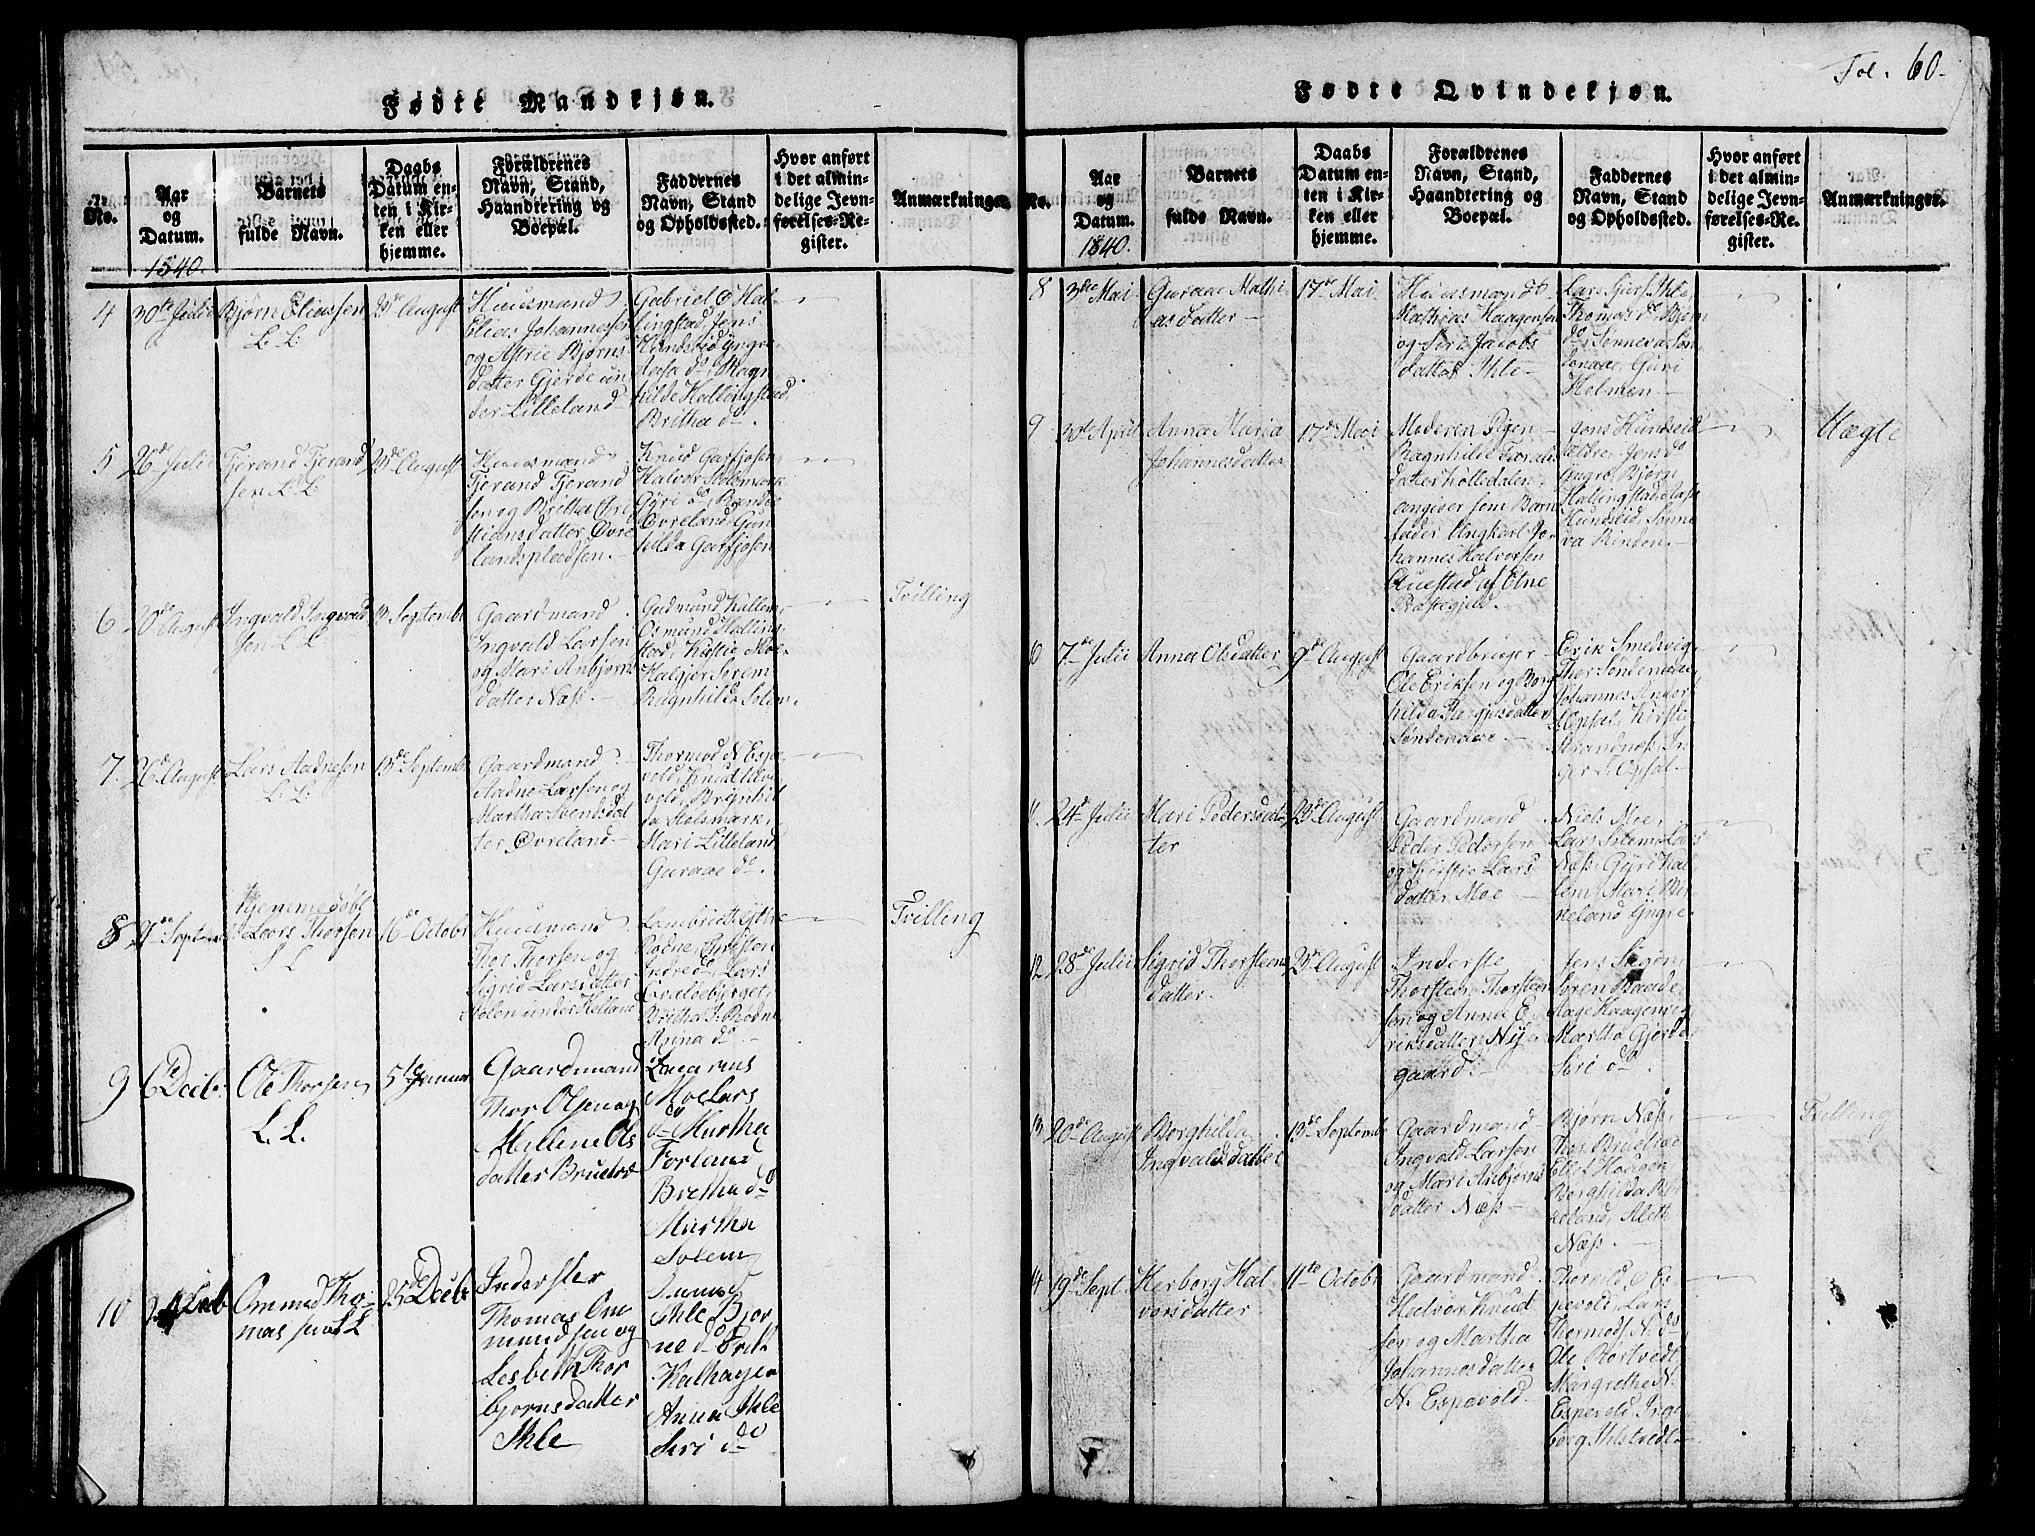 Fol. 60.
Fødte Mandkjøn.
No.
Aar
og
Datum.
1840.
Barnets
fulde Navn.
Daabs
Datum en-
ten i Kir-
ken eller
hjemme.
Forældrenes
Navn, Stand,
Haandtering og
Boepæl.
Faddernes
Navn, Stand
og Opholdssted.
Hvor anført
i det almin-
delige Jevn-
førelses-Re-
gister.
Anmærkninger.
4
30te Julii
Bjørn Eliassen
L. L.
23de August
Huusmand
Elias Johannessen
og Astrie Bjørns
datter Gjerde un
der Lilleland
Gabriel Ø Hal
lingstad, Jens
Hundseid yngre
Aasa do, Ragn
hilde Hallingstad
Britha do.
5
26de Julii
Tjerand Tjerand
sen L. L.
23de August
Huusmand
Tjerand Tjerand
sen og Britha Chri
stiansdatter Øvre
landspladsen.
Knud Garfjosen
Halvor Stølsmark
Gyri do,
Øvreland, Gun
hilda Garfjosen
6
20de August
Ingvald Ingvald
sen L L
13 Septembr
Gaardmand
Ingvald Larsen
og Mari Anbjørns
datter Næss
Gudmund
Osmund Halling
stad, Kistie Moe
Ragnhilde Solem.
Tvilling
7.
26de August
Lars Aadnesen
L. L.
13de Septembr
Gaardmand
Aadne Larsen og
Martha Svendsdat
ter Øvreland
Thormod N Espe
vold, Knud
vold, Brynhil
da Stølsmark,
Mari Lilleland
Guraae do.
8
Septem
Hjemmedøbt
Lars Thorsen
L L
16de Octobr
Huusmand
Thor Thorsen og
Sigrid Larsdatter
Stølen under
Lambrecht Ytre
Rødne, Christen
Indre do, Lars
Britha I. Rødne
Anna do
Tvilling
9
6te Decbr.
Ole Thorsen
L. L.
5te Januar
Gaardmand
Thor Olsen og
Hellene Ols
datter
Moe Lars
do Martha
Forland
Bretha do
Martha
Solem
10
Ommund Tho-
massen L L
25de Decbr
Inderster
Thomas Om
mundsen og
Lesbeth Thor
bjornsdatter
Ihle
Ihle Bjor
ne do Erik
Kalhagen
Anna Ihle
Siri do
Fødte Qvindekjøn.
No.
Aar
og
Datum.
1840.
Barnets
fulde Navn.
Daabs
Datum en-
ten i Kir-
ken eller
hjemme.
Forældrenes
Navn, Stand,
Haandtering og
Boepæl.
Faddernes
Navn, Stand
og Opholdssted.
Hvor anført
i det almin-
delige Jevn-
førelses-Re-
gister.
Anmærkninger.
8
3die Mai
Guraae Mathi
asdatter
17de Mai
Huusmand
Mathias Haagensen
og Siri Jacobs
datter Ihle
Lars Ihle,
Thomas do, Bjørn
do, Sønneva Søn
denaae, Guri
Holmen.
9
30te April
Anna Maria
Johannesdatter
17de Mai
Moderen Pigen
Ragnhilde
datter Høttedalen,
angiver som Barn
fader Ungkarl Jo-
hannes Halvorsen
af Etne
Præstegjeld.
Jens Hundseid
ældre, Jens do
yngre, Bjørn
Hallingstad, Aasa
Hundseid, Sønne
va Rinden.
Uægte
10
7de Julii
Anna Olsdatter
9de August
Gaardbruger
Ole Eriksen og Borg
hilda Thorgjusdatter
Søndenaae
Erik Smedsvig,
Thor Søndenaae,
Johannes
Opsal, Kirstie
Strandnæss, In
ger S. Opsal.
11.
24de Julii
Mari Pedersdat
ter
23de August
Gaardmand
Peder Pedersen
og Kirstie Lars
datter Moe
Niels Moe,
Lars Solem, Lars
Næss, Gyri
Mari Bir
keland yngre.
12
28de Julii
Sigrid Thorsteens
datter.
23de August
Inderste
Thorsteen Thorsteen
sen og Anna E
riksdatter Ny
gaard
Jens
Søren Baade
Aage Haagen
Martha Gjerde
Siri do.
13
20de August
Borghilda
Ingvaldsdatter
13de Septembr
Gaardmand
Ingvald Larsen
og Mari Anbjørns
datter Næss
Bjørn Næss,
Thor
Elles Haagen
Borghilda Bir
keland, Aleth
Næss.
Tvilling
14
19de Sept.
Herborg Hal
vorsdatter
11te Octobr
Gaardmand
Halvor Knud
sen og Martha
Johannesdatter
N. Espevold.
Thorild Ø Es
pevold, Lars
Thormods. N. do
Ole Børtvedt,
Margrethe N.
Espevold, Inge
borg